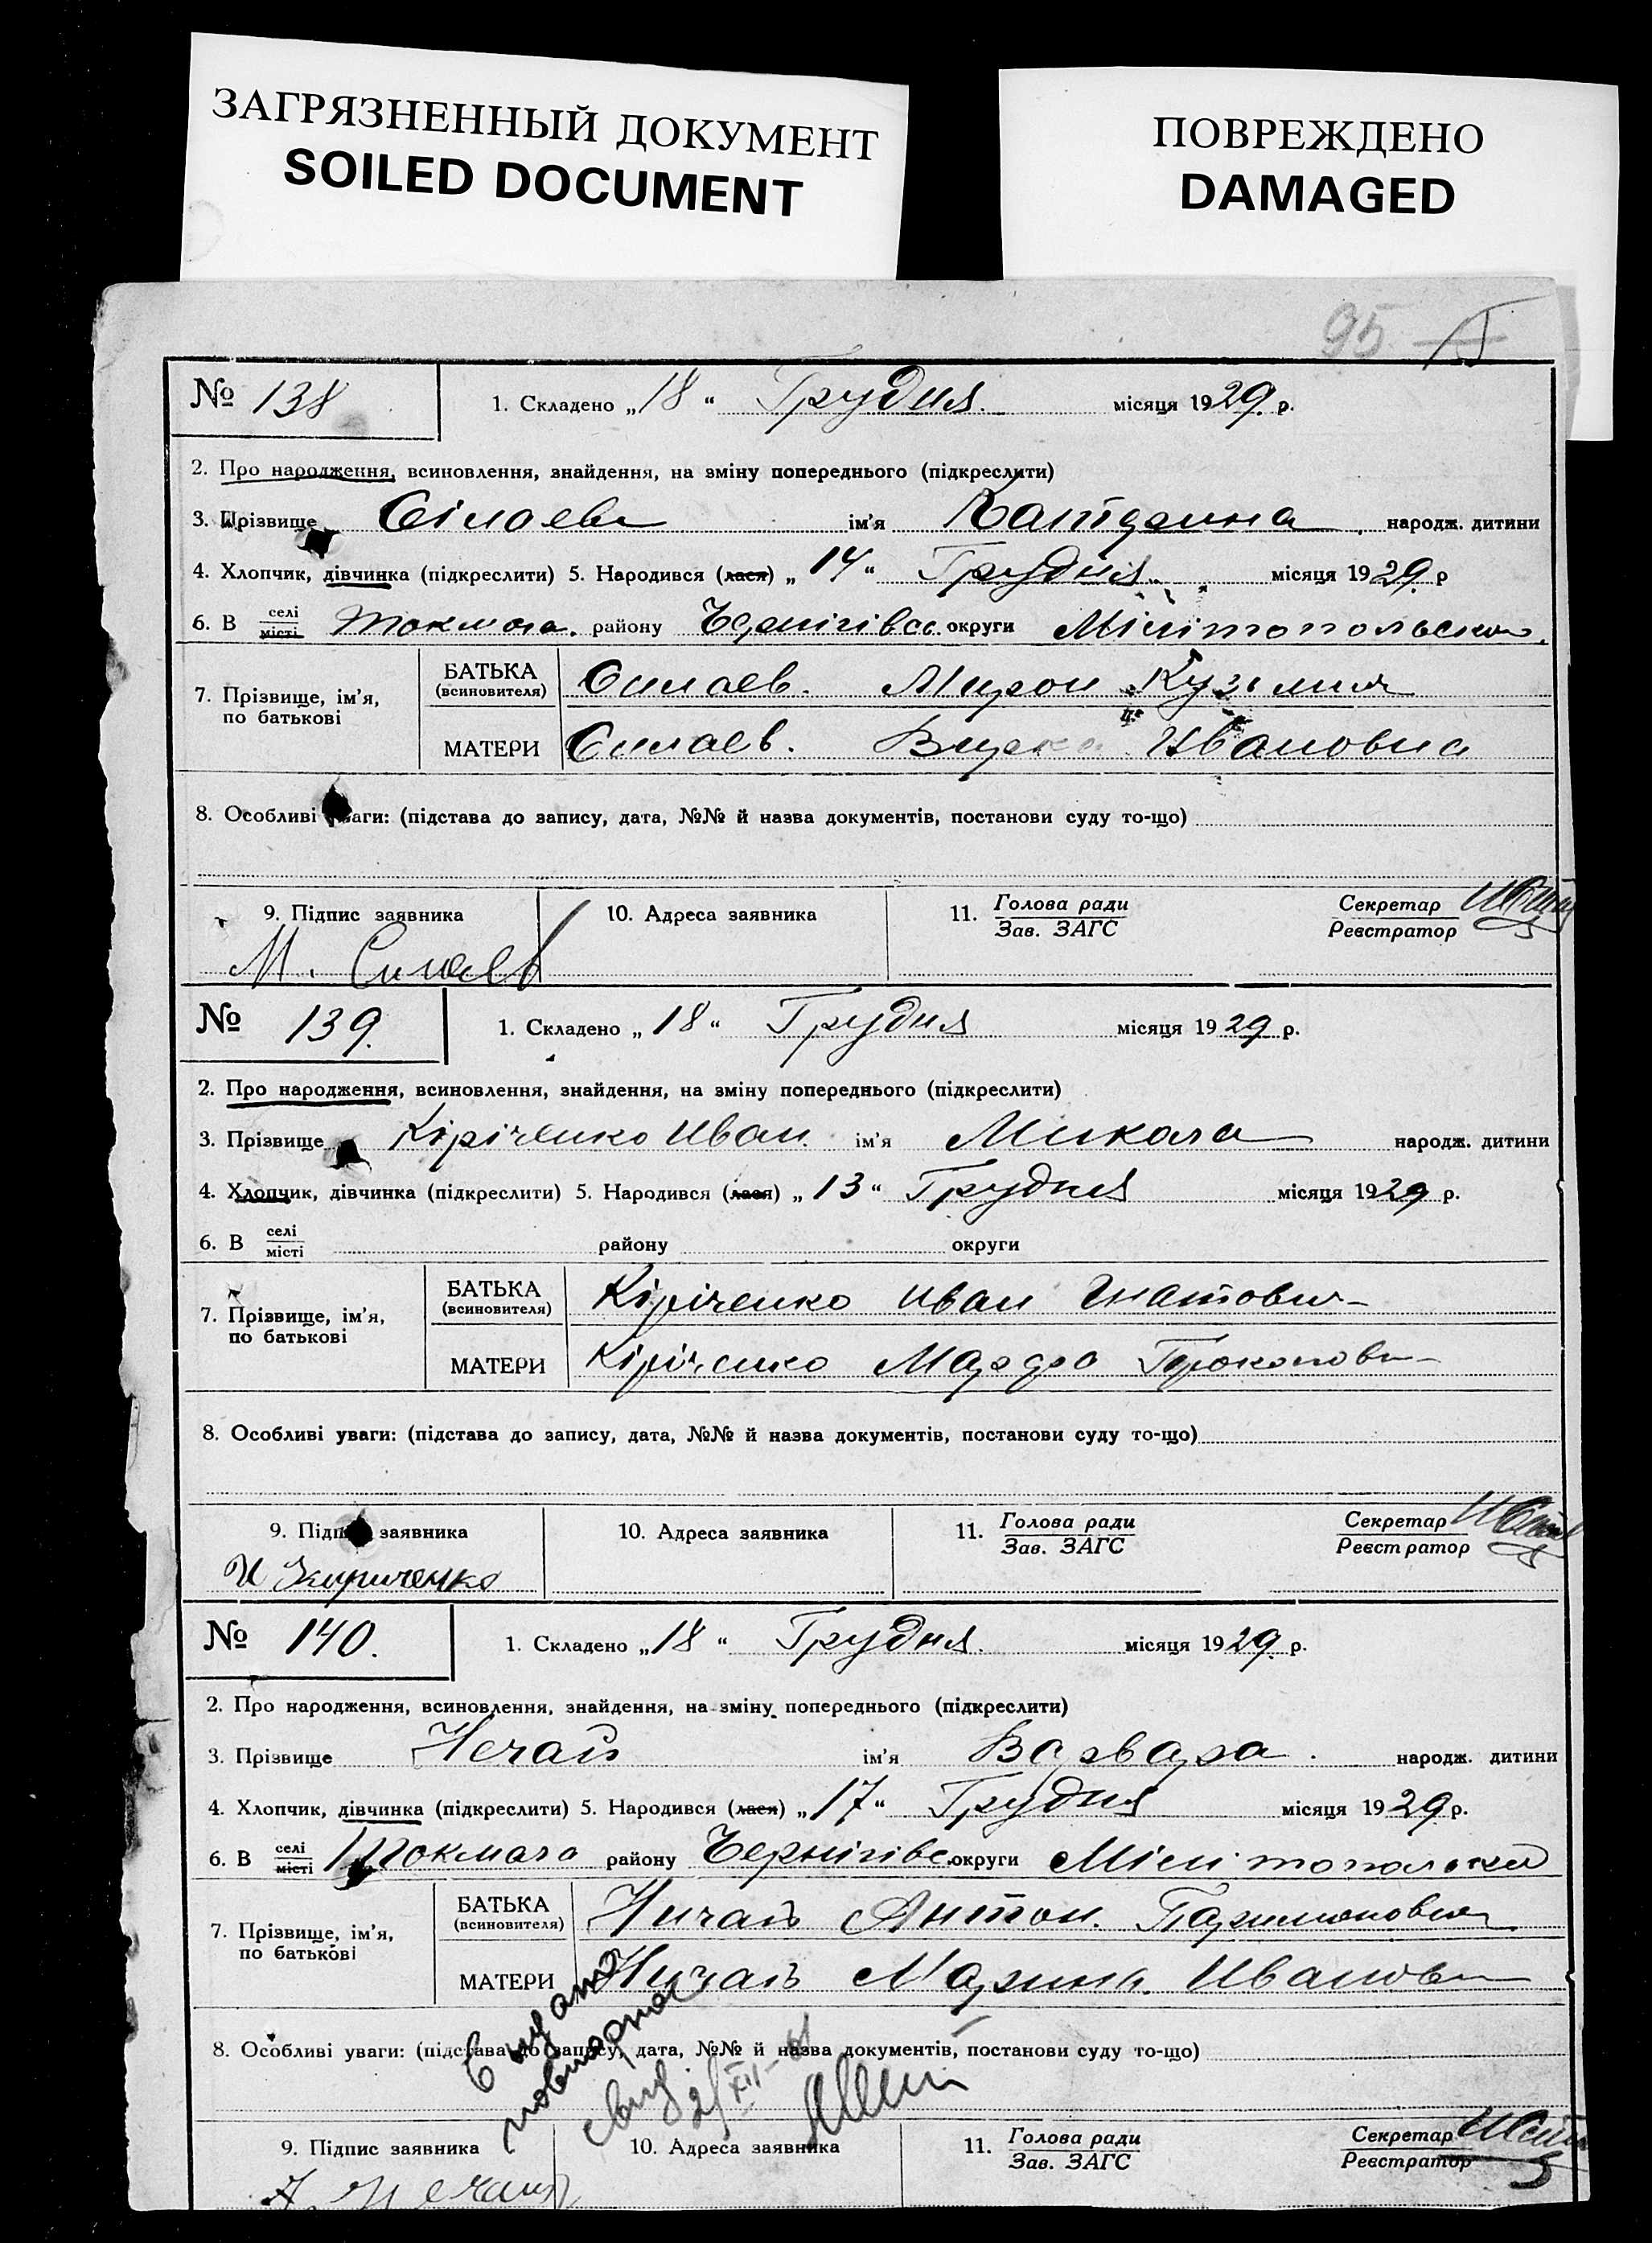 ЗАГРЯЗНЕННЫЙ ДОКУМЕНТ
SOILED DOCUMENT
ПОВРЕЖДЕНО
DAMAGED
95
№ 138
1. Складено „18“ Грудня місяця 1929 р.
2. Про народження, всиновлення, знайдення, на зміну попереднього (підкреслити)
3. Прізвище Сілаева ім'я Катерина народж. дитини
4. Хлопчик, дівчинка (підкреслити) 5. Народився (лася) „14“ Грудня місяця 1929 р
6. В селі місті Токмача району Чернігівсс округи Мілітопольском
7. Прізвище, ім'я, по батькові
БАТЬКА (всиновителя) Силаев. Мирон Кузьмич
МАТЕРИ Силаев. Ивановна
8. Особливі уваги: (підстава до запису, дата, №№ й назва документів, постанови суду то-що)
9. Підпис заявника 10. Адреса заявника 11. Голова ради Зав. ЗАГС Секретар Реєстратор
М. Силаев
№ 139.
1. Складено „18“ Грудня місяця 1929 р.
2. Про народження, всиновлення, знайдення, на зміну попереднього (підкреслити)
3. Прізвище Кіріченко Иван ім'я Микола народж. дитини
4. Хлопчик, дівчинка (підкреслити) 5. Народився (лася) „13“ Грудня місяця 1929 р.
6. В селі місті району округи
7. Прізвище, ім'я, по батькові
БАТЬКА (всиновителя) Кіріченко Иван Гнатович
МАТЕРИ Кіріченко Марфа Прокопов
8. Особливі уваги: (підстава до запису, дата, №№ й назва документів, постанови суду то-що)
9. Підпис заявника 10. Адреса заявника 11. Голова ради Зав. ЗАГС Секретар Реєстратор
№ 140.
1. Складено „18“ Грудня місяця 1929 р.
2. Про народження, всиновлення, знайдення, на зміну попереднього (підкреслити)
3. Прізвище Нечай ім'я Варвара народж. дитини
4. Хлопчик, дівчинка (підкреслити) 5. Народився (лася) „17“ Грудня місяця 1929 р.
6. В селі місті Токмача району Чернігівс. округи Мілітопольски
7. Прізвище, ім'я, по батькові
БАТЬКА (всиновителя) Ничай Антон. Паримонович
МАТЕРИ Ничай Марина Иванов
Выдано повторное свид 21/XII-
8. Особливі уваги: (підстава до запису, дата, №№ й назва документів, постанови суду то-що)
9. Підпис заявника 10. Адреса заявника 11. Голова ради Зав. ЗАГС Секретар Реєстратор